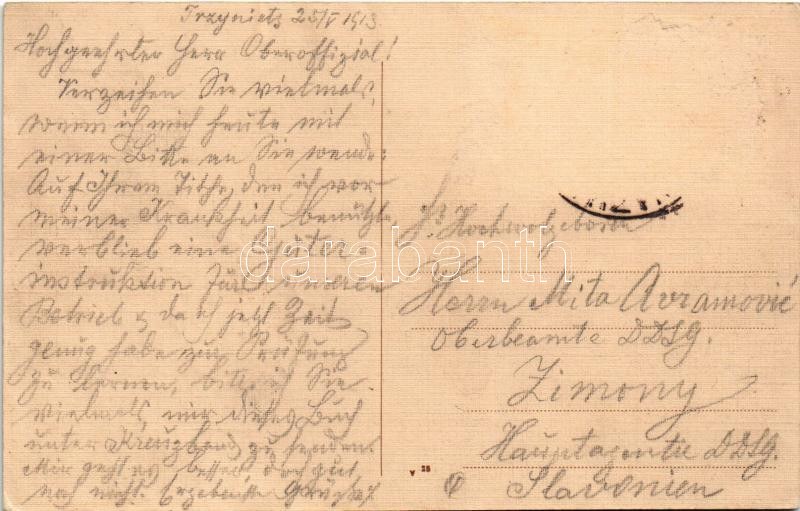 Trzynietz 25/V 1913
Hochgeehrter Herr Oberoffizial!
Verzeihen Sie vielmals,
wenn ich mich heute mit
einer Bitte an Sie wende:
Auf Ihrem Tische, den ich vor
meiner Krankheit benützte,
verblieb eine Güter-
instruktion für unseren
Betrieb & da ich jetzt Zeit
genug habe zur Prüfung
zu lernen, bitte ich Sie
vielmals, mir dieses Buch
unter Kreuzband zu senden.
Mir geht es besser, doch gut
noch nicht. Ergebenste Grüsse
Hochwohlgeboren
Herrn Mita Avramović
Oberbeamte DDSG.
Zimony
Hauptagentie DDSG.
Slavonien
V 25
darabanth